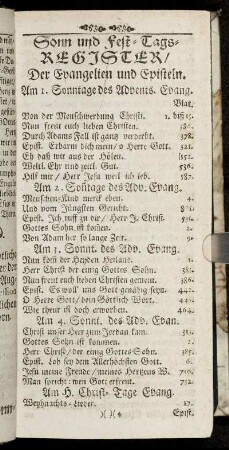 Sonn und Fest-Tags-
REGISTER/
Der Evangelien und Episteln.
Am 1. Sonntage des Advents. Evang.
Blat.
Von der Menschwerdung Christi. 1. biß 15.
Nun freut euch lieben Christen. 380.
Durch Adams Fall ist ganz verderbt. 378.
Epist. Erbarm dich mein/ o Herre Gott. 321.
Eh daß wir aus der Höllen.
Weltl. Ehr und zeitl. Güt. 636.
Hilf mir/ Herr Jesu weil ich leb. 587.
Am 2. Sontage des Adv. Evang.
Menschen-Kind merck eben. 4.
Und vom Jüngsten Gericht.
Epist. Ich ruff zu dir/ Herr J. Christ.
Gottes Sohn ist kommen. 2.
Von Adam her so lange Zeit. 9.
Am 3. Sonnt. des Adv. Evang.
Nun komt der Heyden Heiland. 1.
Herr Christ der einig Gottes Sohn. 385.
Nun freut euch lieben Christen gemein. 380.
Epist. Es woll uns Gott genädig seyn.
O Herre Gott/ dein Göttlich Wort. 445.
Wie theur ist doch erworben. 464.
Am 4. Sonnt. des Adv. Evan.
Christ unser Herr zum Jordan kam.
Gottes Sohn ist kommen. 2.
Herr Christ/ der einig Gottes-Sohn. 385.
Epist. Lob sey dem Allerhöchsten Gott. 6.
Jesu meine Freude/ meines Hertzens W. 710.
Man spricht: wen Gott erfreut. 732.
Am H. Christ-Tage Evang.
Weyhnachts-Lieder. 27.
)( )( 4
Epist.